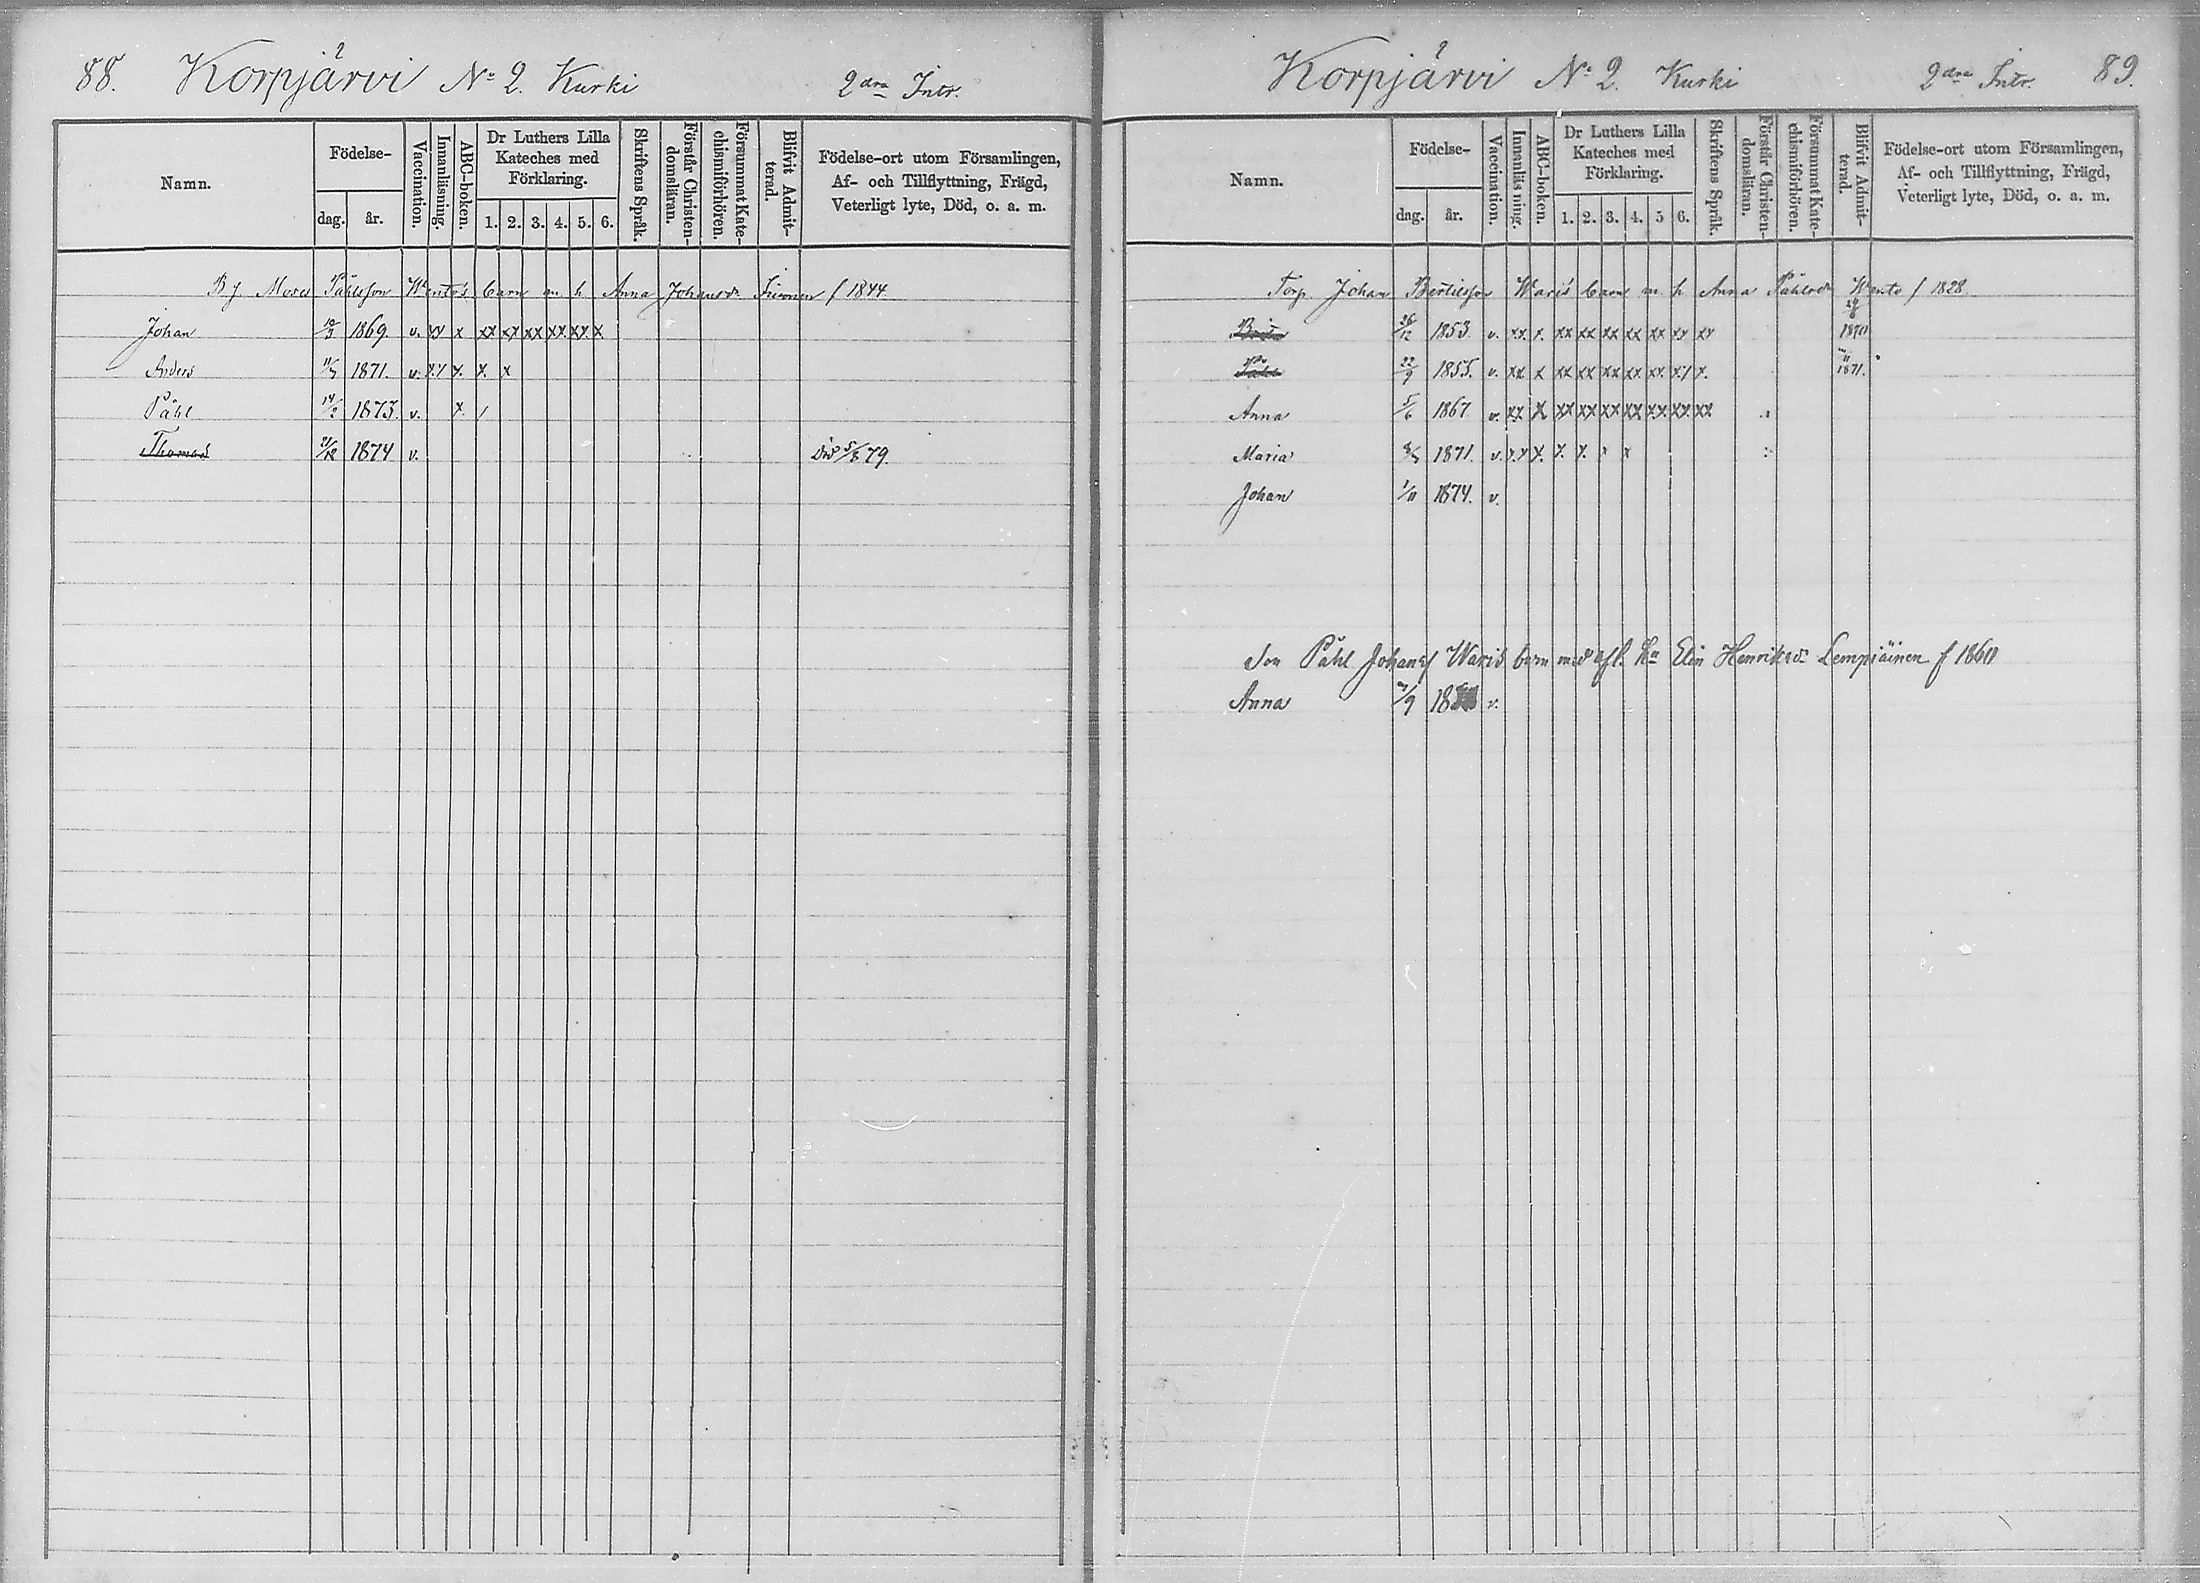 88. Korpjärvi No 2. Kurki 2dra Intr.
Namn. Födelse- dag. år. Vaccination. Innanläsning. ABC-boken. Dr Luthers Lilla Kateches med Förklaring. 1. 2. 3. 4. 5. 6. Skriftens Språk. Förstår Christen-domsläran. Försummat Kate-chismiförhören. Blifvit Admit-terad. Födelse-ort utom Församlingen, Af- och Tillflyttning, Frägd, Veterligt lyte, Död, o. a. m.
Moses Påhlsson Wento's barn m. h. Anna Johansdr f 1844.
Johan 1869. v. xx x xx xx xx xx xx x
Anders 1871. v. xx x. x. x
Påhl 14/2 1873. v. x. /
Thomas 21/12 1874 v. Död 5/8 79.
Korpjärvi No 2. Kurki 2dra Intr. 89.
Namn. Födelse- dag. år. Vaccination. Innanläsning. ABC-boken. Dr Luthers Lilla Kateches med Förklaring. 1. 2. 3. 4. 5 6. Skriftens Språk. Förstår Christen-domsläran. Försummat Kate-chismiförhören. Blifvit Admit-terad. Födelse-ort utom Församlingen, Af- och Tillflyttning, Frägd, Veterligt lyte, Död, o. a. m.
Torp. Johan Bertilsson Waris barn m. h. Anna Påhlsdr Wento f 1828
26/12 1853. v. xx. x. xx xx xx xx xx xx xx 1870
Påhl 22/9 1855. v. xx x xx xx xx xx xx. x/ x. 1871.
Anna 5/6 1867 v. xx x xx xx xx xx xx xx xx
Maria 1871. v. xx x. x. x. x x
Johan 1/11 1874. v.
Son Påhl Johans Waris barn med afl. Hu Elin Henriksdr Lempiäinen f 1860
Anna v.